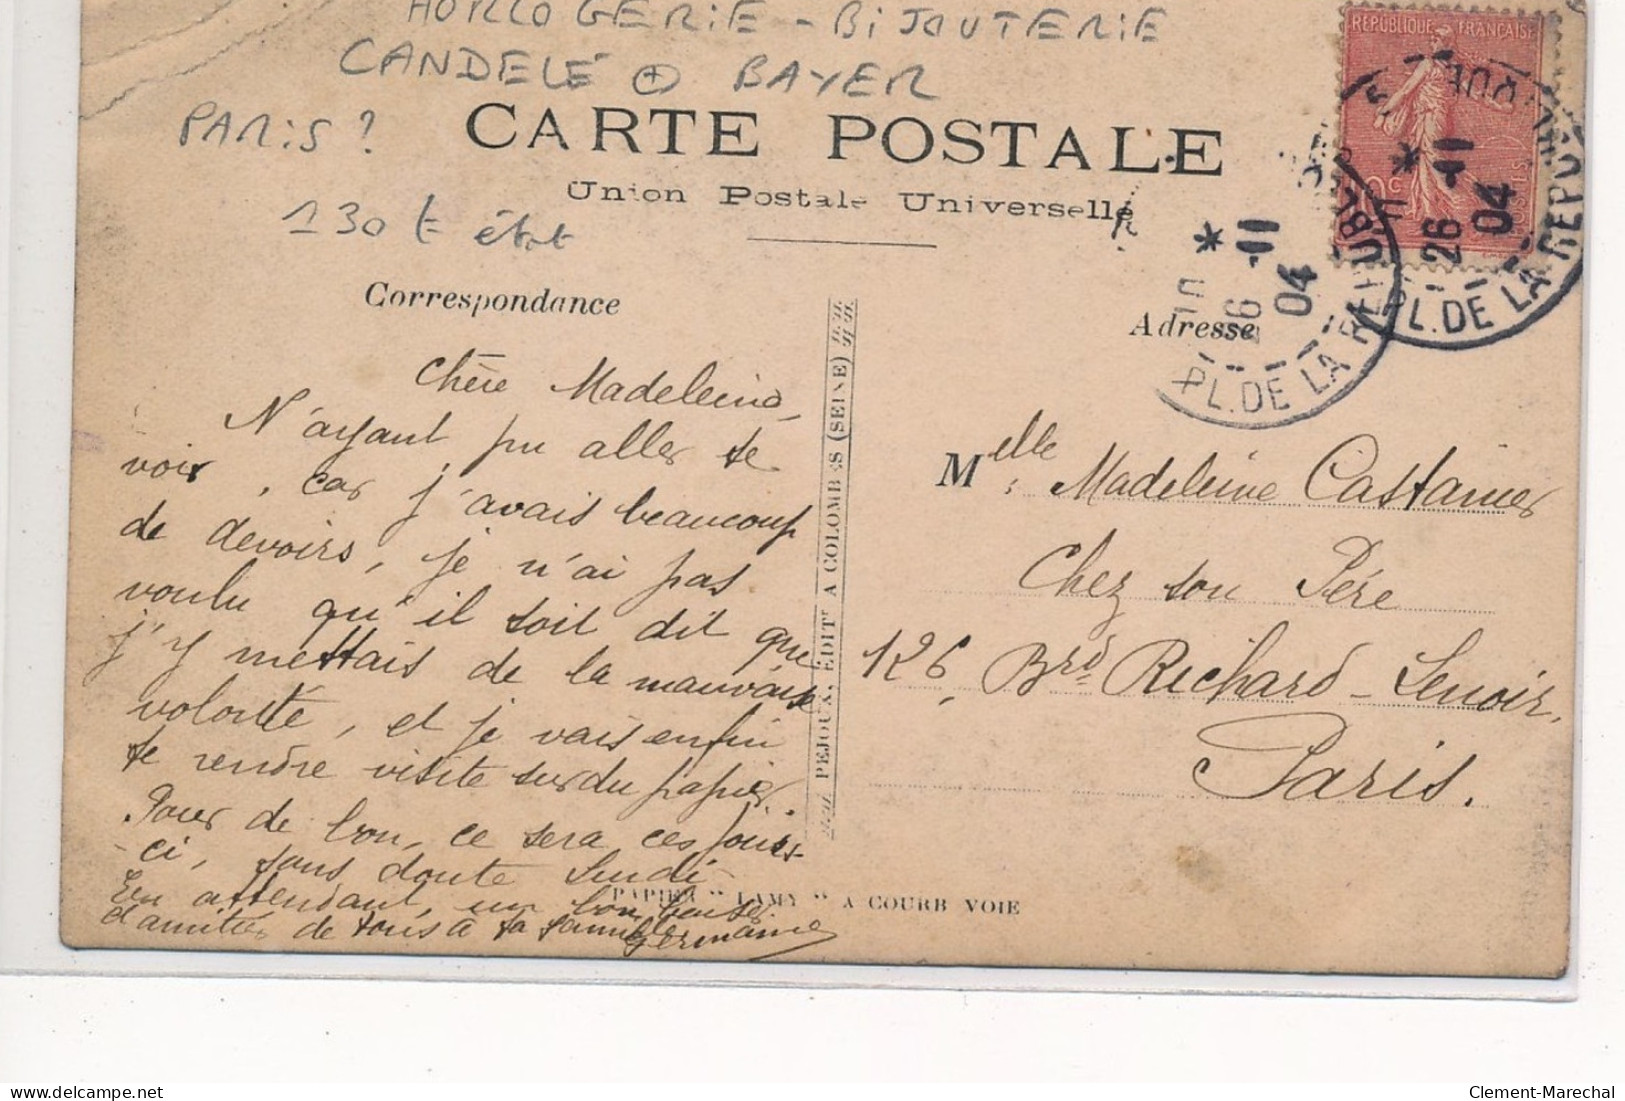 HORLOGERIE - BIJOUTERIE
CANDELÉ BAYER
PARIS ?
130 € état
CARTE POSTALE
Union Postale Universelle
RÉPUBLIQUE FRANÇAISE
PL. DE LA RÉPUBLIQUE
26 -11
04
PL. DE LA RÉPUBLIQUE
* 26 -11
04
Correspondance
Adresse
Chère Madeleine,
N'ayant pu aller te
voir, car j'avais beaucoup
de devoirs, je n'ai pas
voulu qu'il soit dit que
j'y mettais de la mauvaise
volonté, et je vais enfin
te rendre visite sur du papier.
Pour de bon, ce sera ces jours-
-ci, sans doute Lundi
En attendant, un bon baiser
d'amitié de tous à ta famille
Germaine
PEJOUX, EDITr A COLOMBES (SEINE)
Melle Madeleine Castanier
Chez son Père
126, Brd Richard-Lenoir,
Paris.
PAPIER " LAMY " A COURBEVOIE
Clement-Marechal
www.delcampe.net